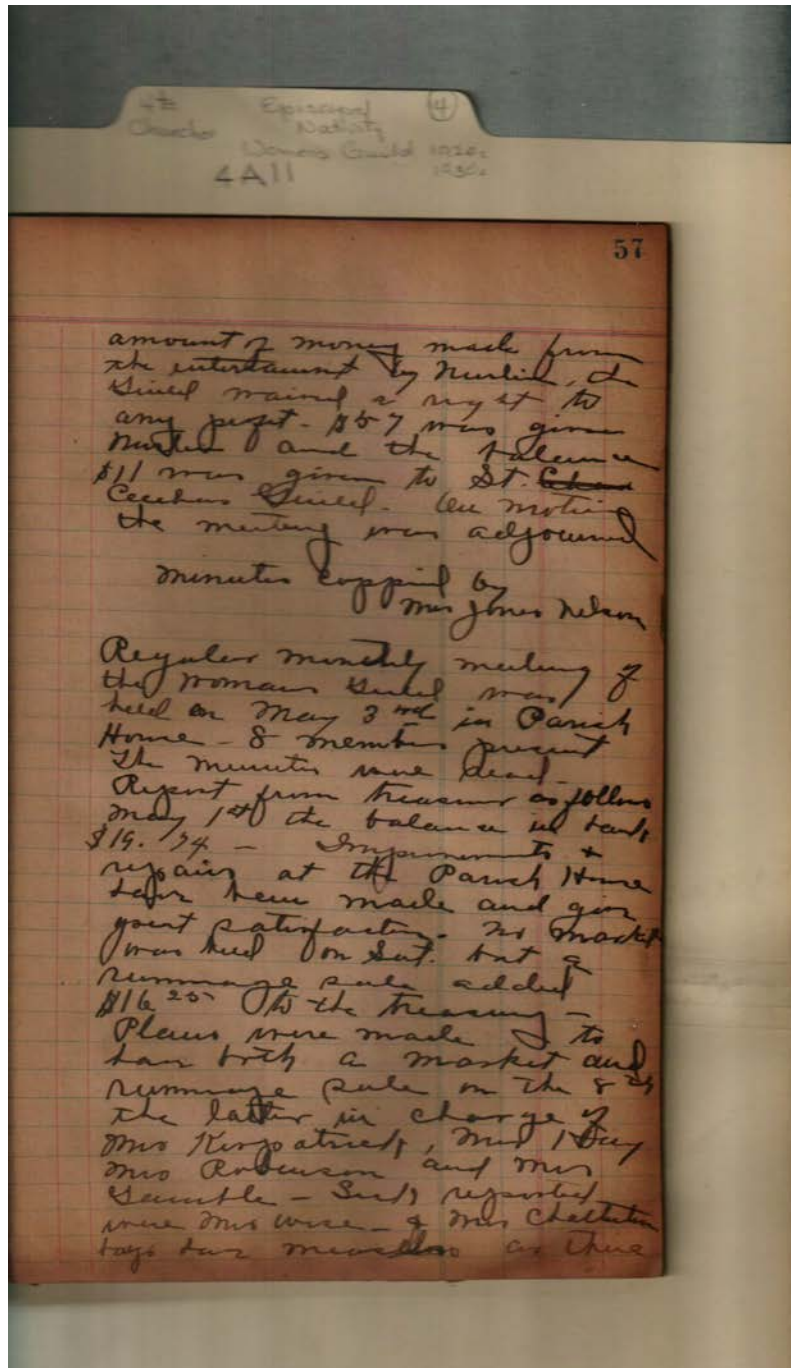 4th Episcopal ④
Churches Nativity
Womens Guild 1920s
4A11 1930s
57
amount of money made from
the entertaiment by the
Guild waived a right to
any profit - $57 was given
and the balance
$11 was given to St.
Cecelias Guild - On motion
the meeting was adjourned
Minutes coppied by
Mrs Jones Nelson
Regular monthly meeting of
the Womans Guild was
held on May 3rd in Parish
Home - 8 members present
The minutes were read -
Report from treasurer as follows
May 1st the balance in bank
$19.74 - Improvements &
repairs at the Parish House
have been made and give
great satisfaction - No market
was held on Sat. but a
rummage sale added
$16 25 to the treasury -
Plans were made to
have both a market and
rummage sale on the 8th
the latter in charge of
Mrs Kirpatrick, Mrs
Mrs Robinson and Mrs
Gamble - Sick reported
were Mrs Wise - & Mrs Chatterton
boys have measles as there